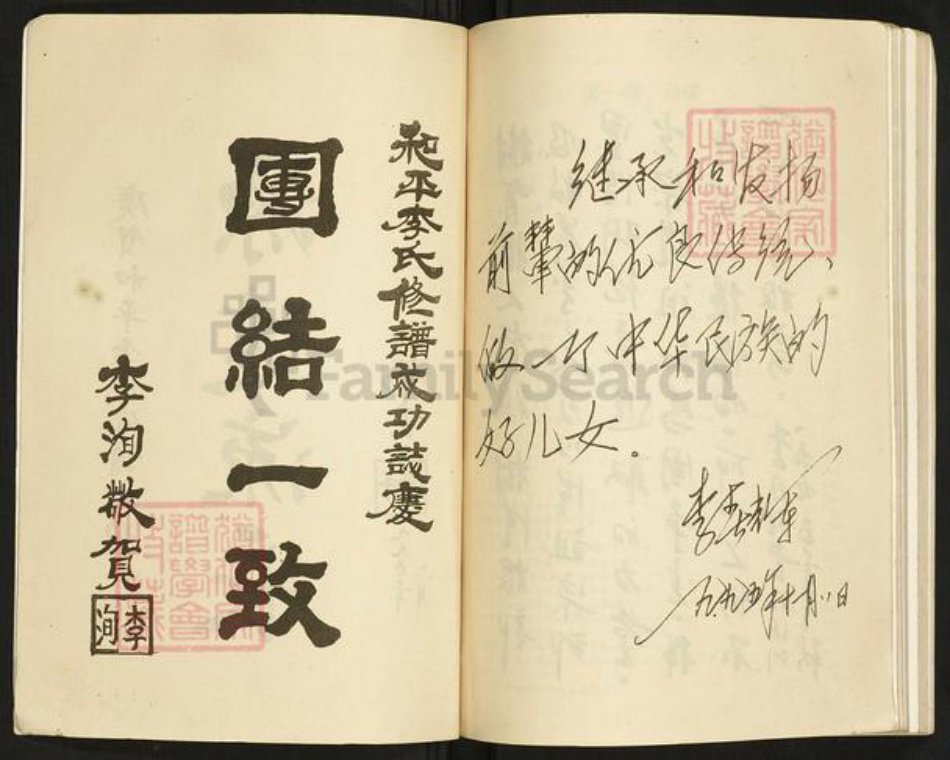 和平李氏修譜成功誌慶
團結一致
李洵敬賀
李洵
继承和发扬
前辈的优良传统、
做一个中华民族的
好儿女。
李
一九九五年十月八日
FamilySearch